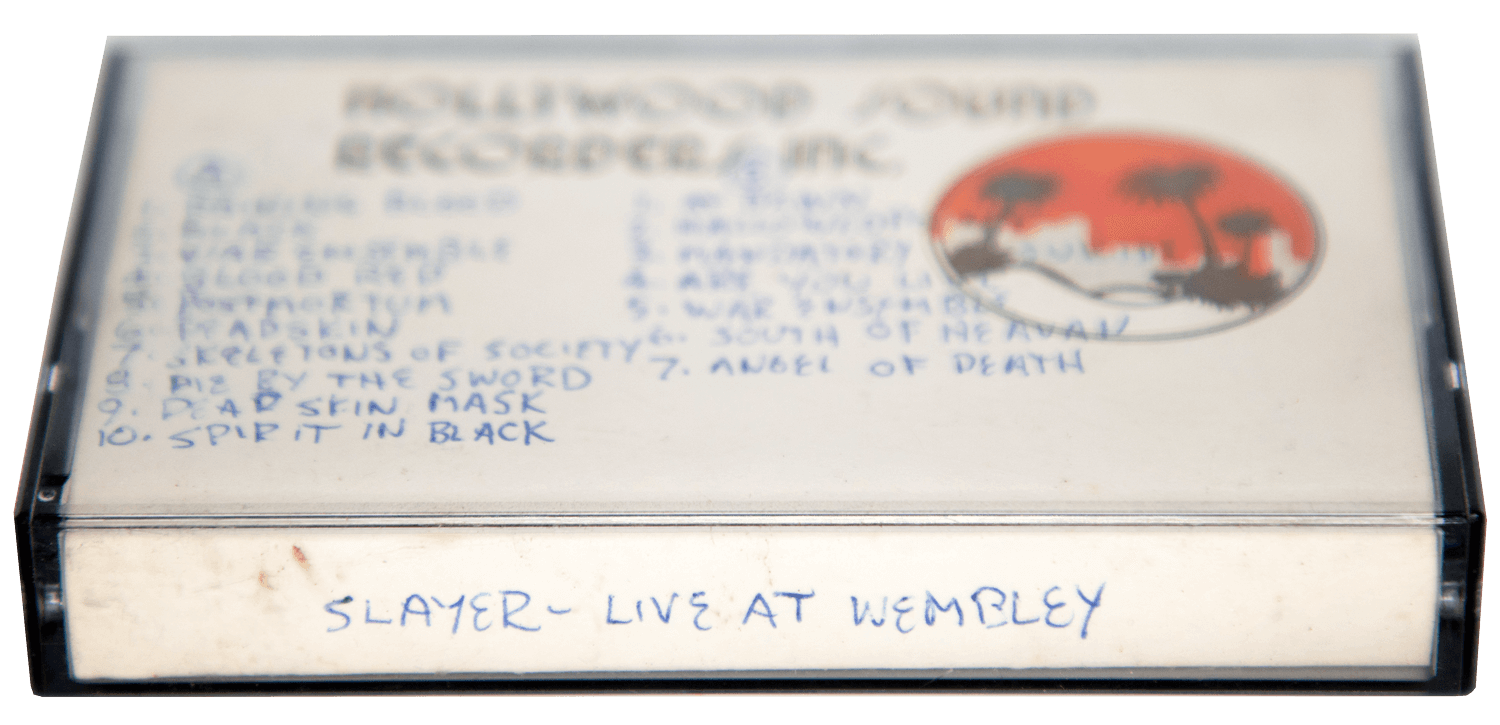 HOLLYWOOD SOUND
RECORDERS INC.
A
RAINING BLOOD
BLACK
WAR ENSEMBLE
4. BLOOD RED
5. POSTMORTUM
6. DEADSKIN
7. SKELETONS OF SOCIETY
8. DIE BY THE SWORD
9. DEAD SKIN MASK
10. SPIRIT IN BLACK
B
1.
2.
3. MANDATORY
4. ARE YOU
5. WAR ENSEMBLE
6. SOUTH OF HEAVAN
7. ANGEL OF DEATH
SLAYER- LIVE AT WEMBLEY